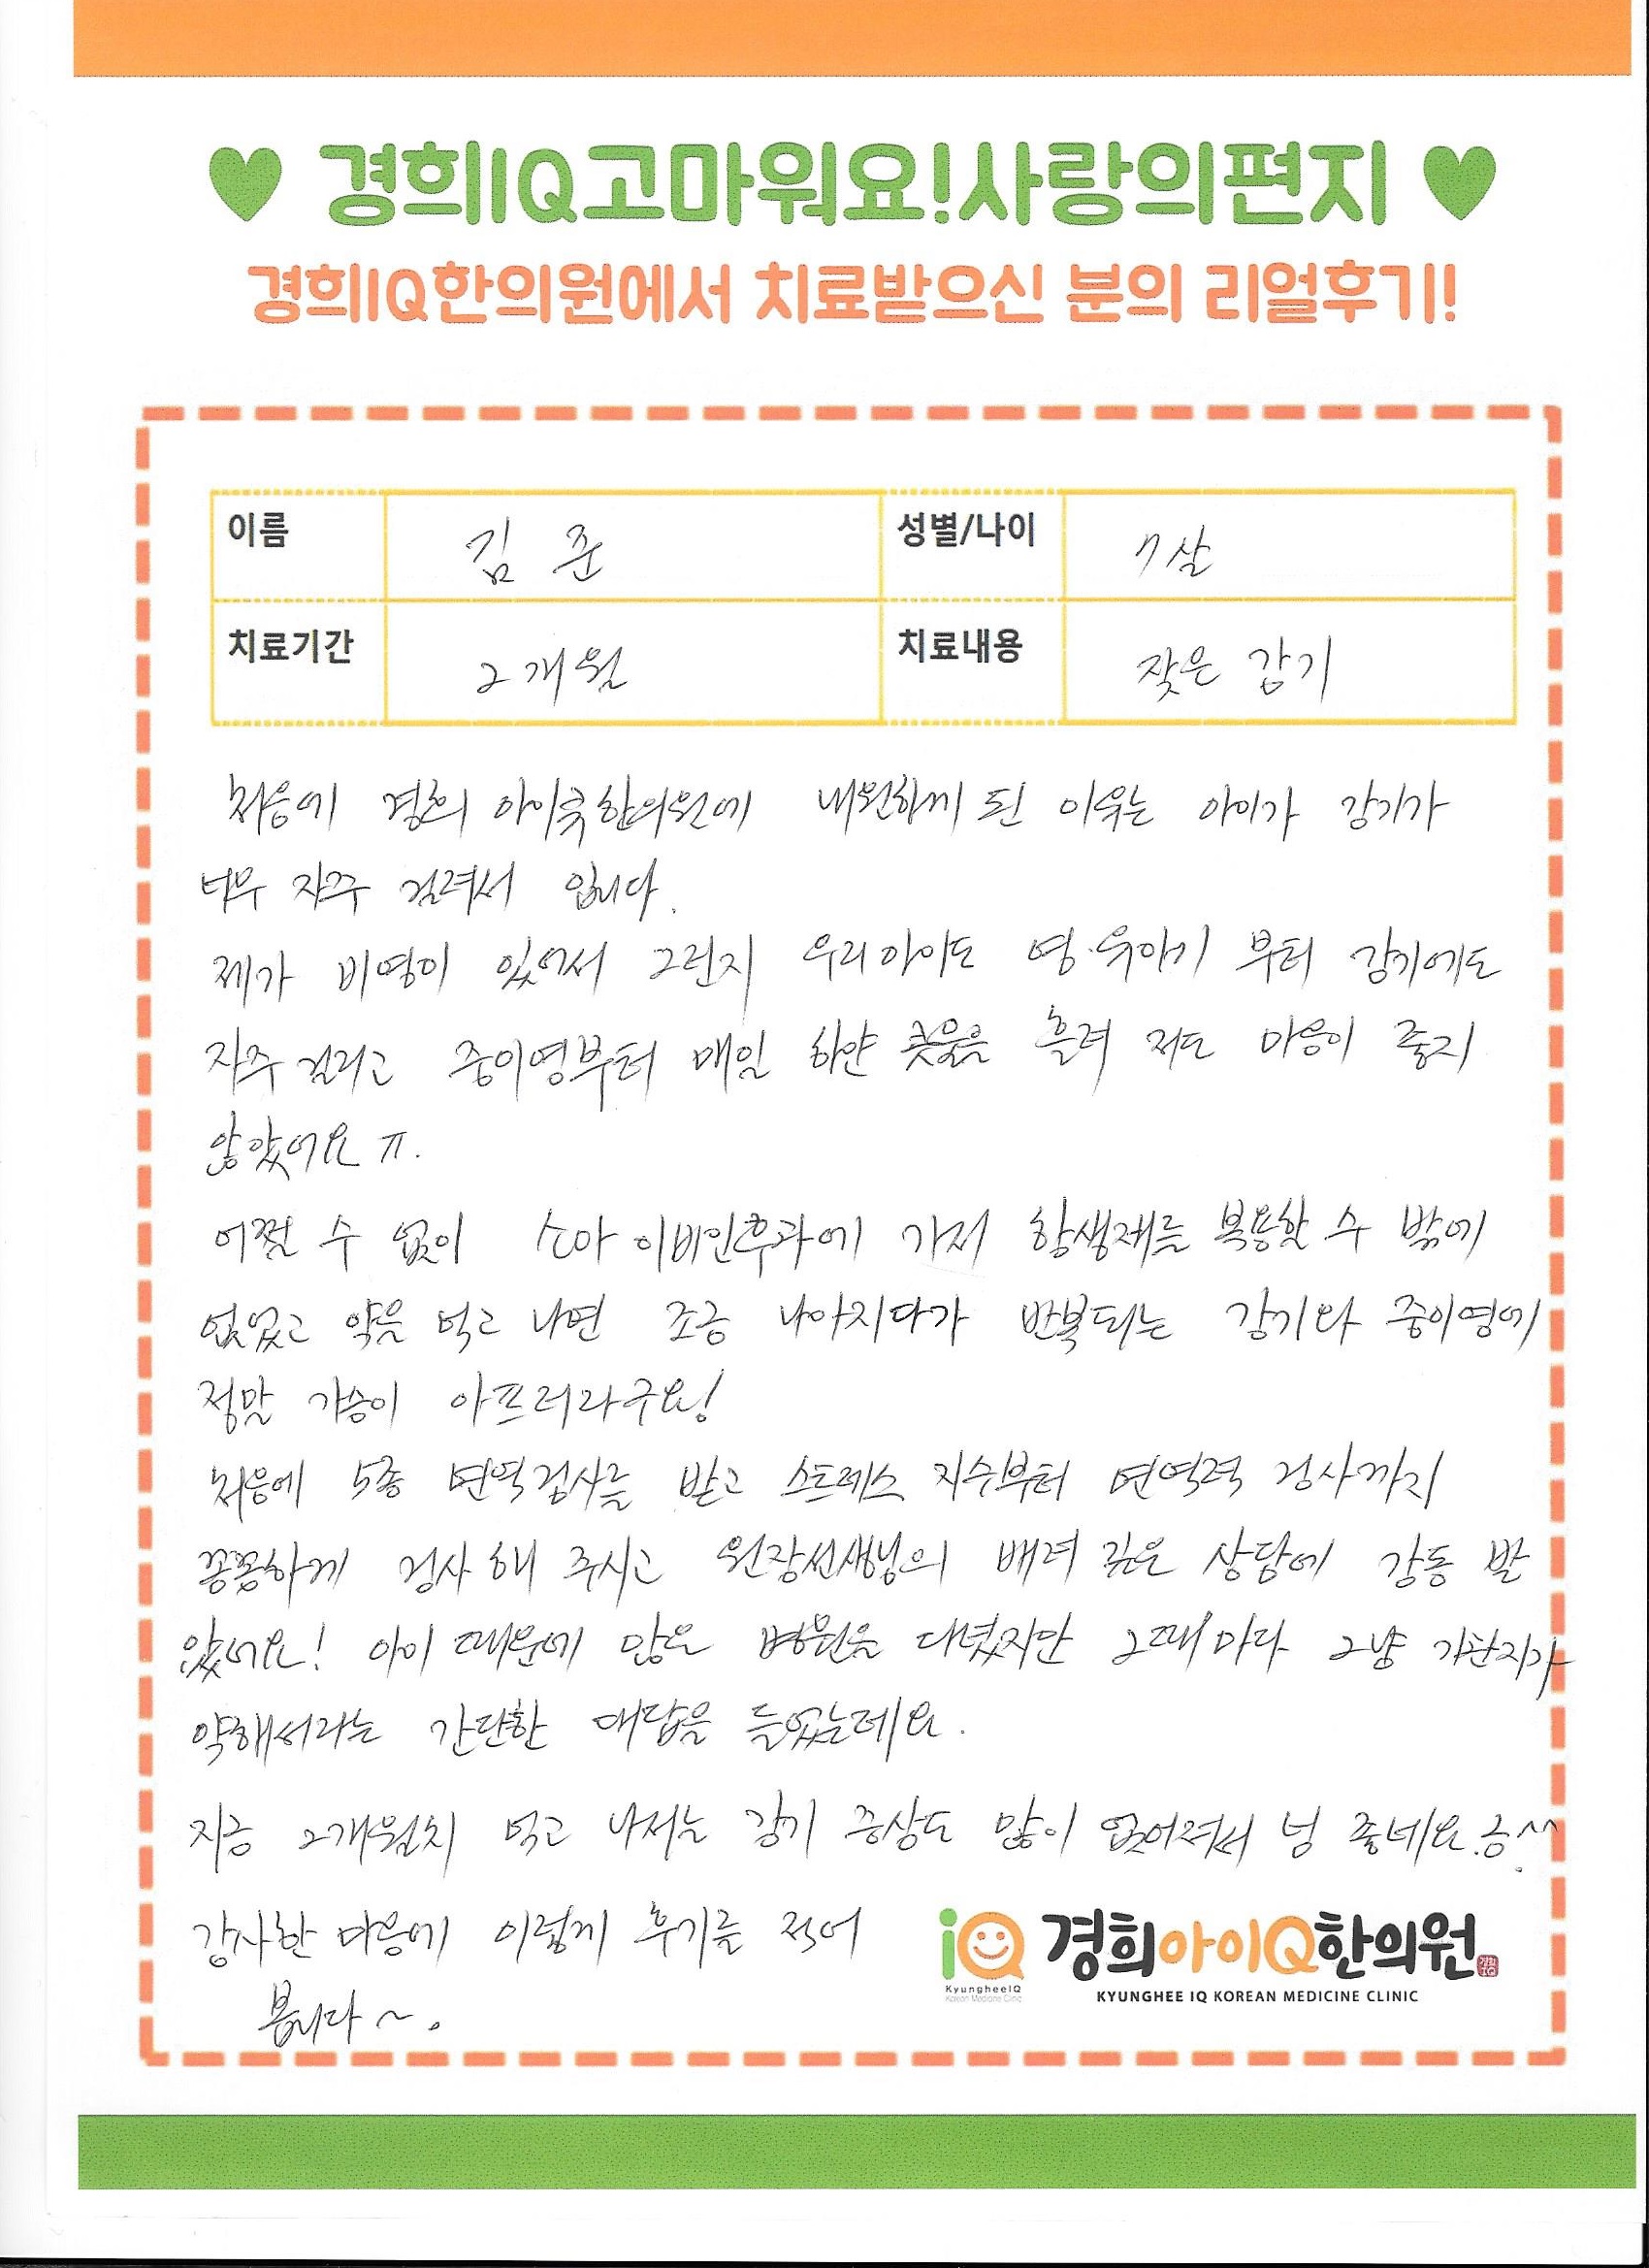 경희IQ고마워요!사랑의편지
경희IQ한의원에서 치료받으신 분의 리얼후기!
이름 김 준 성별/나이 7살
치료기간 2개월 치료내용 잦은 감기
처음에 경희 아이큐한의원에 내원하게 된 이유는 아이가 감기가
너무 자주 걸려서 입니다.
제가 비염이 있어서 그런지 우리아이도 영·유아기 부터 감기에도
자주걸리고 중이염부터 매일 하얀 콧물을 흘려 저도 마음이 좋지
않았어요 ㅠ.
어쩔 수 없이 소아 이비인후과에 가서 항생제를 복용할 수 밖에
없었고 약을 먹고 나면 조금 나아지다가 반복되는 감기와 중이염에
정말 가슴이 아프더라구요!
처음에 5종 면역검사를 받고 스트레스 지수부터 면역력 검사까지
꼼꼼하게 검사 해 주시고 원장선생님의 배려 깊은 상담에 감동 받
았어요! 아이 때문에 많은 병원을 다녔지만 그때마다 그냥 기관지가
약해서라는 간단한 대답을 들었는데요.
지금 2개월치 먹고 나서는 감기 증상도 많이 없어져서 넘 좋네요.긍^^
감사한 마음에 이렇게 후기를 적어
봅니다~.
iQ 경희아이Q한의원
KyungheeIQ
Korean Medicine Clinic
KYUNGHEE IQ KOREAN MEDICINE CLINIC